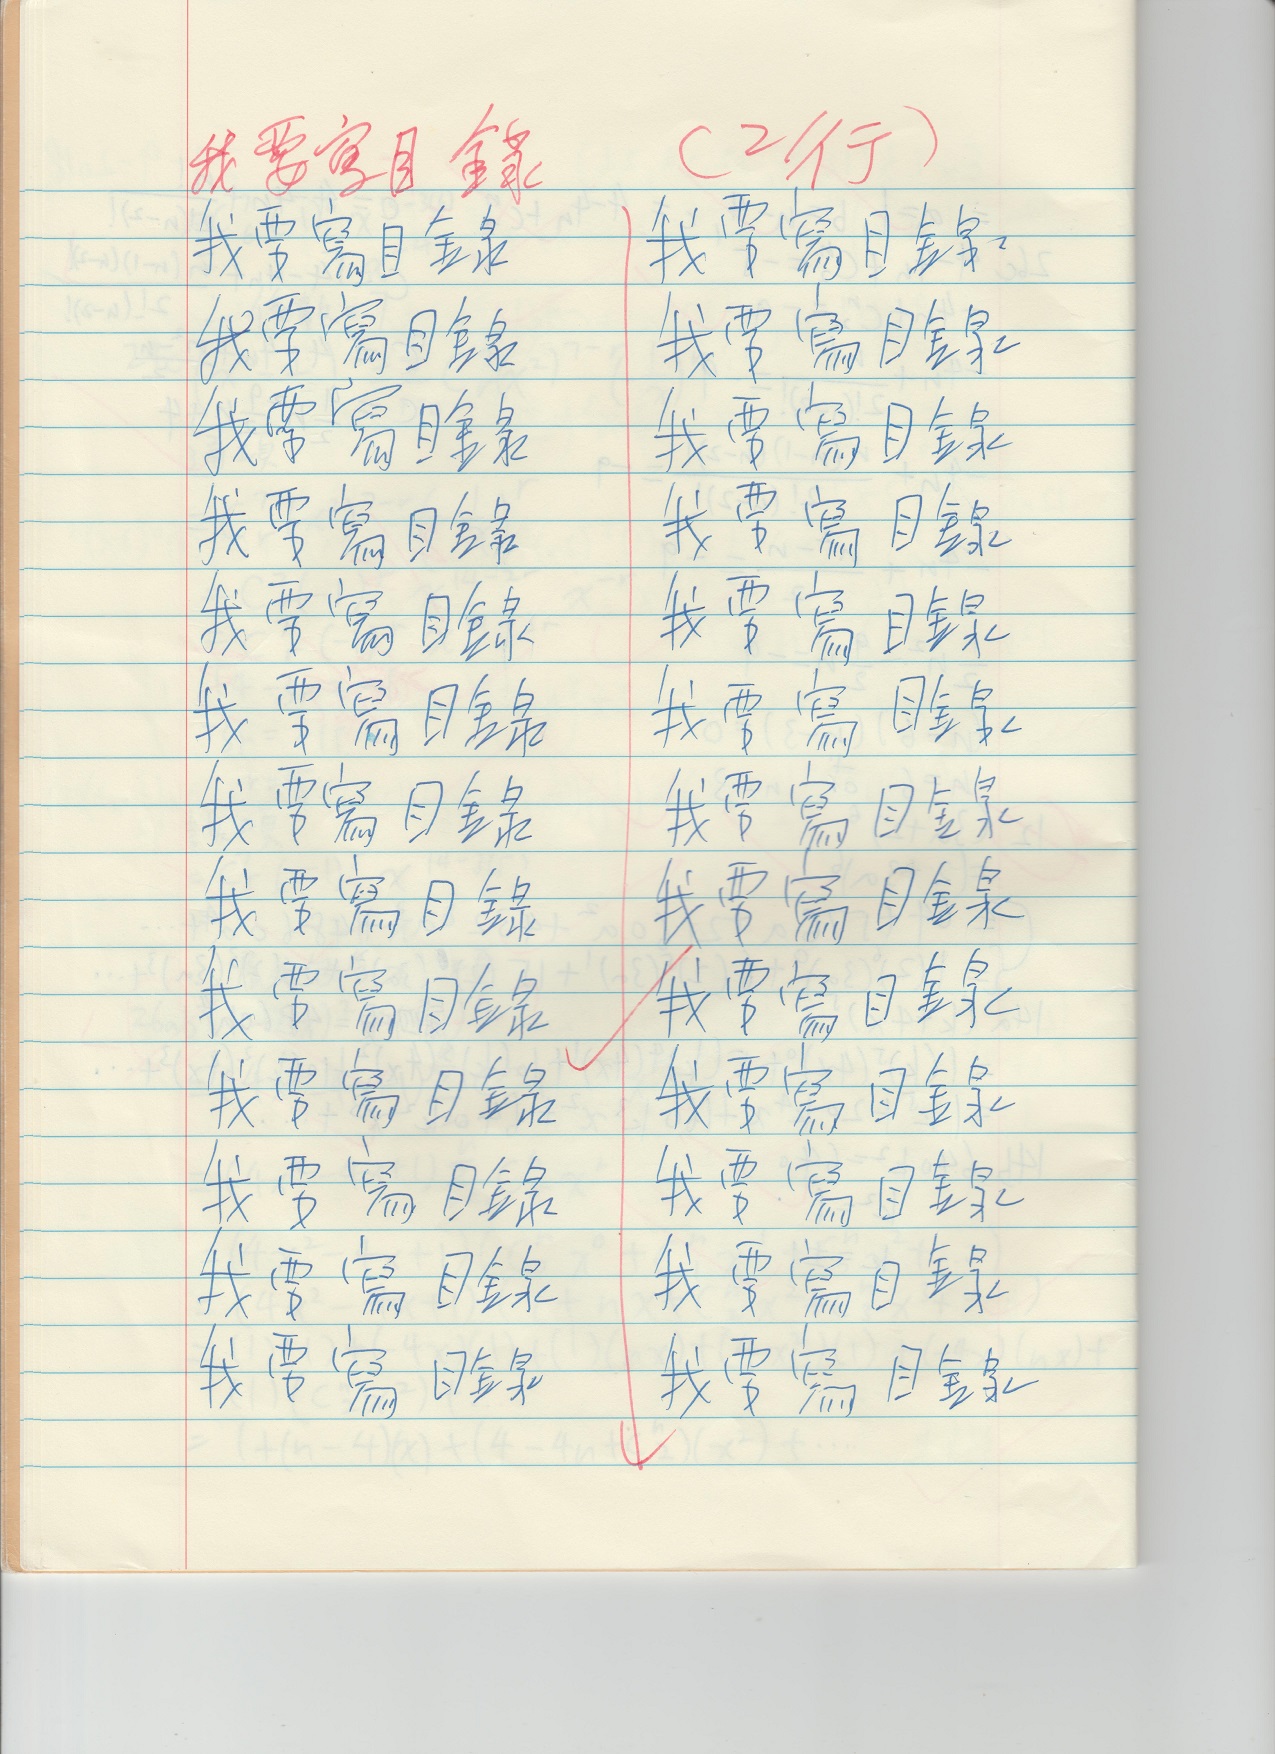 我要寫目錄 (2行)
我要寫目錄 我要寫目錄
我要寫目錄 我要寫目錄
我要寫目錄 我要寫目錄
我要寫目錄 我要寫目錄
我要寫目錄 我要寫目錄
我要寫目錄 我要寫目錄
我要寫目錄 我要寫目錄
我要寫目錄 我要寫目錄
我要寫目錄 我要寫目錄
我要寫目錄 我要寫目錄
我要寫目錄 我要寫目錄
我要寫目錄 我要寫目錄
我要寫目錄 我要寫目錄